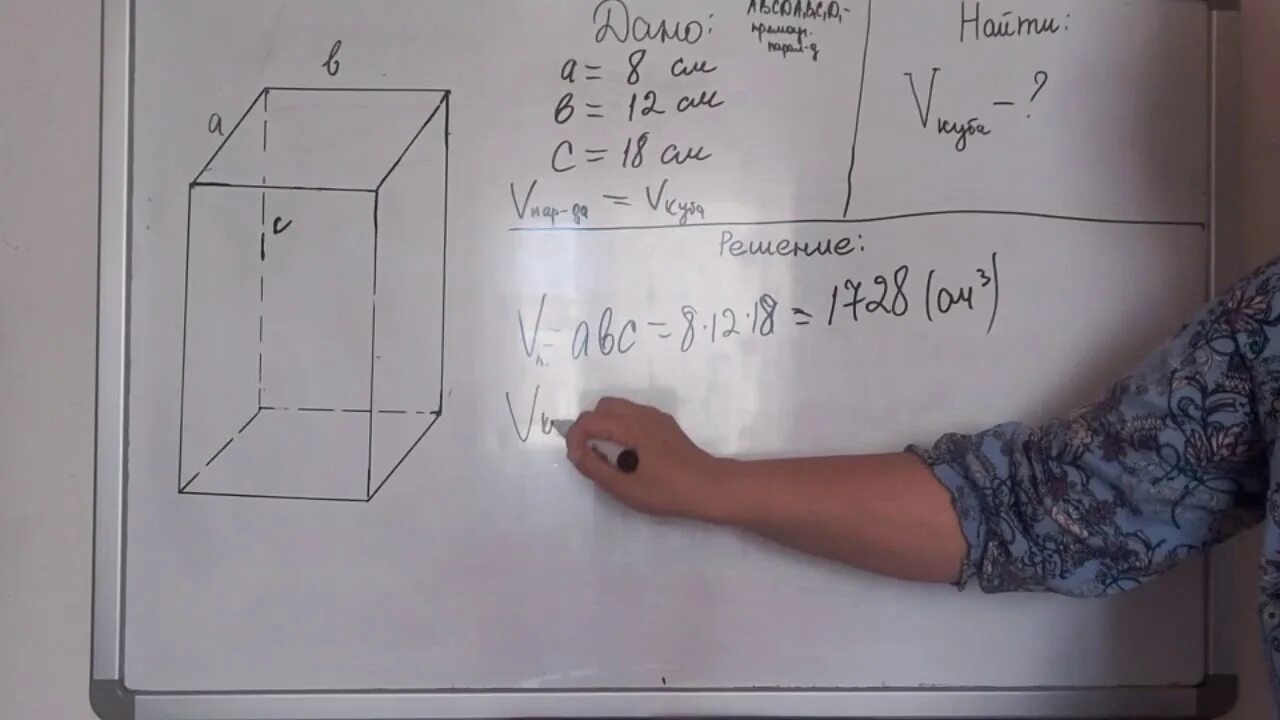 в
а
с
Дано:
ABCDA₁B₁C₁D₁-
прямоуг.
парал-д
а = 8 см
в = 12 см
с = 18 см
Vпар-да = Vкуба
Найти:
Vкуба - ?
Решение:
Vп. = авс = 8·12·18 = 1728 (см³)
Vк